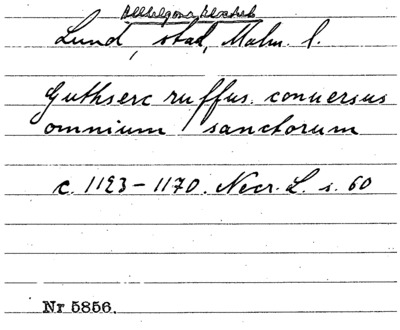 Allhelgona kloster
Lund, stad, Malm. l.
Guthserc ruffus. conuersus
omnium sanctorum
c. 1123-1170. Necr. L. s. 60
Nr 5856.